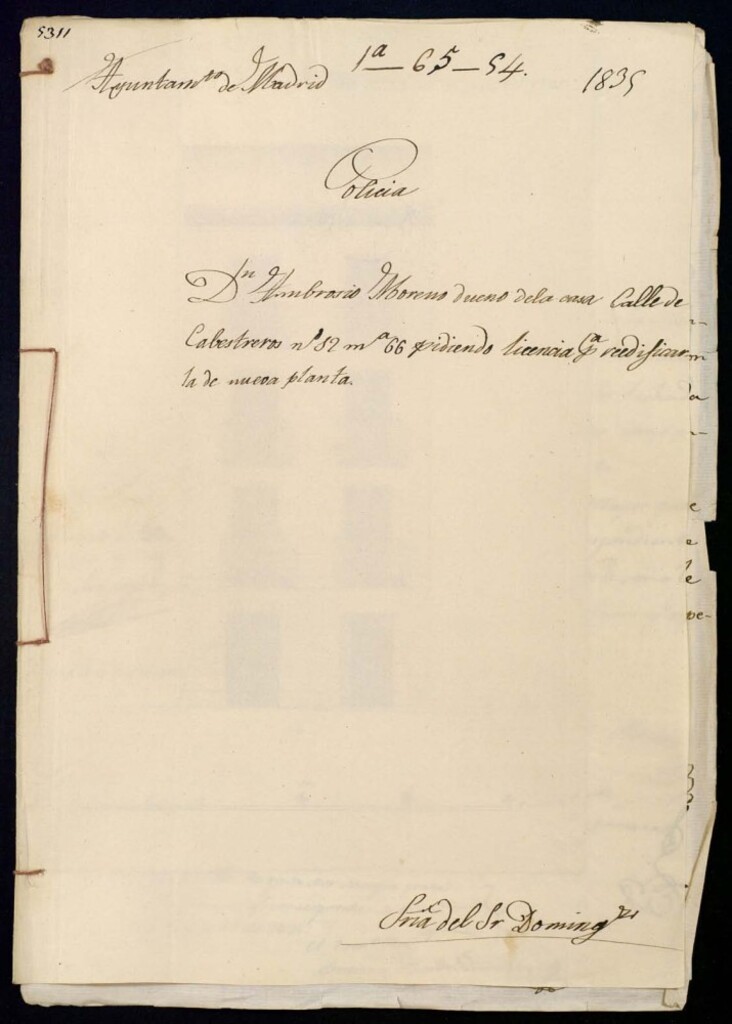 5311
Ayuntamto de Madrid 1a-65-54. 1835
Policia
Dn Ambrosio Moreno dueno dela casa Calle de
Cabestreros nº 12 ma 66 pidiendo licencia pa reedificar
la de nueva planta.
Sria del Sr Domingz